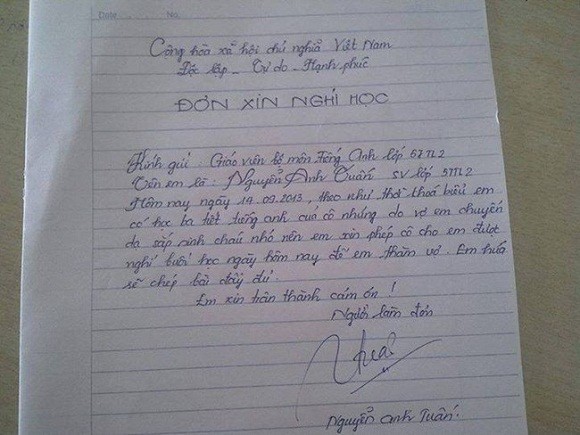 Date No.
Cộng hòa xã hội chủ nghĩa Việt Nam
Độc lập - Tự do - Hạnh phúc
ĐƠN XIN NGHỈ HỌC
Kính gửi : Giáo viên bộ môn Tiếng Anh lớp 57TL2
Tên em là : Nguyễn Anh Tuấn SV lớp 57TL2
Hôm nay ngày 19.09.2013, theo như thời thoá biểu em
có học ba tiết tiếng anh của cô nhưng do vợ em chuyển
dạ sắp sinh cháu nhỏ nên em xin phép cô cho em được
nghỉ buổi học ngày hôm nay để em thăm vợ. Em hứa
sẽ chép bài đầy đủ.
Em xin trân thành cám ơn !
Người làm đơn
Nguyễn Anh Tuấn.